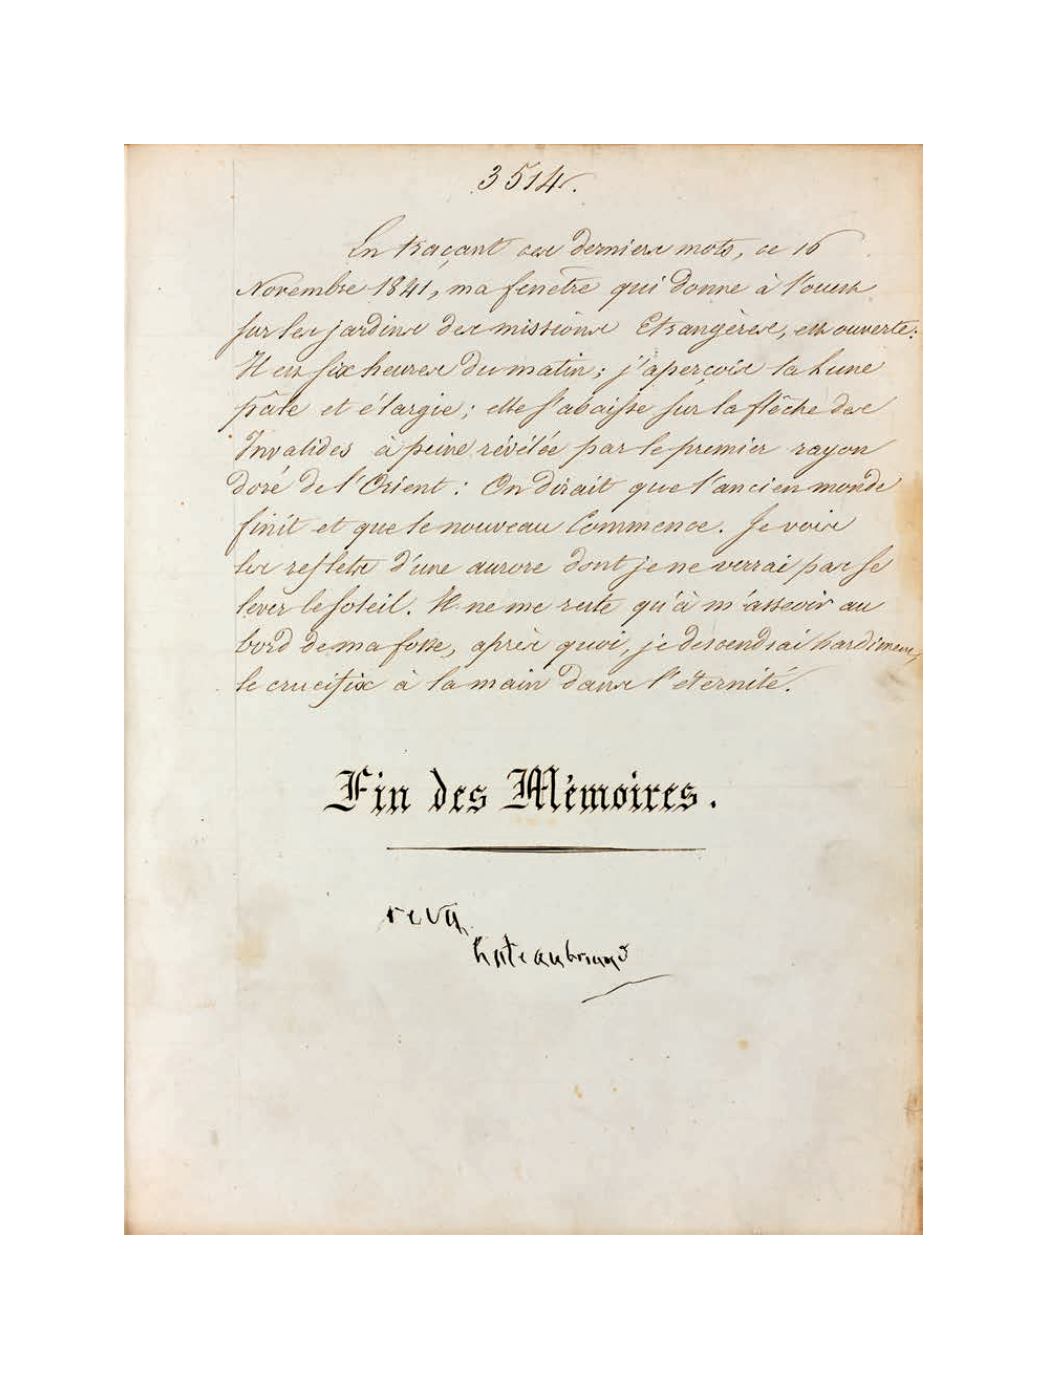 3514.
En traçant ces derniers mots, ce 16
Novembre 1841, ma fenêtre qui donne à l'ouest
sur les jardins des missions Etrangères, est ouverte:
Il est six heures du matin; j'aperçois la Lune
pâle et élargie; elle s'abaisse sur la flêche des
Invalides à peine révélée par le premier rayon
doré de l'Orient: On dirait que l'ancien monde
finit et que le nouveau Commence. Je vois
les reflets d'une aurore dont je ne verrai pas se
lever le soleil. Il ne me reste qu'à m'asseoir au
bord de ma fosse, après quoi, je descendrai hardiment,
le crucifix à la main dans l'éternité.
Fin des Mémoires.
revu,
Chateaubriand